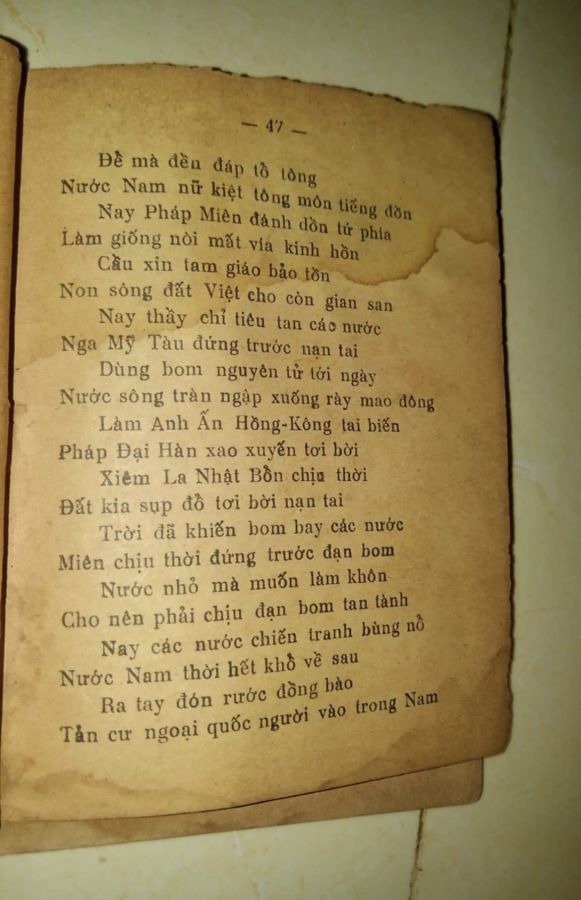 — 47 —
Đề mà đền đáp tổ tông
Nước Nam nữ kiệt tông môn tiếng đồn
Nay Pháp Miên đánh dồn tứ phía
Làm giống nòi mất vía kinh hồn
Cầu xin tam giáo bảo tồn
Non sông đất Việt cho còn gian san
Nay thầy chỉ tiêu tan các nước
Nga Mỹ Tàu đứng trước nạn tai
Dùng bom nguyên tử tới ngày
Nước sông tràn ngập xuống rày mao đông
Làm Anh Ấn Hồng-Kông tai biến
Pháp Đại Hàn xao xuyến tơi bời
Xiêm La Nhật Bồn chịu thời
Đất kia sụp đổ tơi bời nạn tai
Trời đã khiến bom bay các nước
Miên chịu thời đứng trước đạn bom
Nước nhỏ mà muốn làm khôn
Cho nên phải chịu đạn bom tan tành
Nay các nước chiến tranh bùng nổ
Nước Nam thời hết khổ về sau
Ra tay đón rước đồng bào
Tản cư ngoại quốc người vào trong Nam